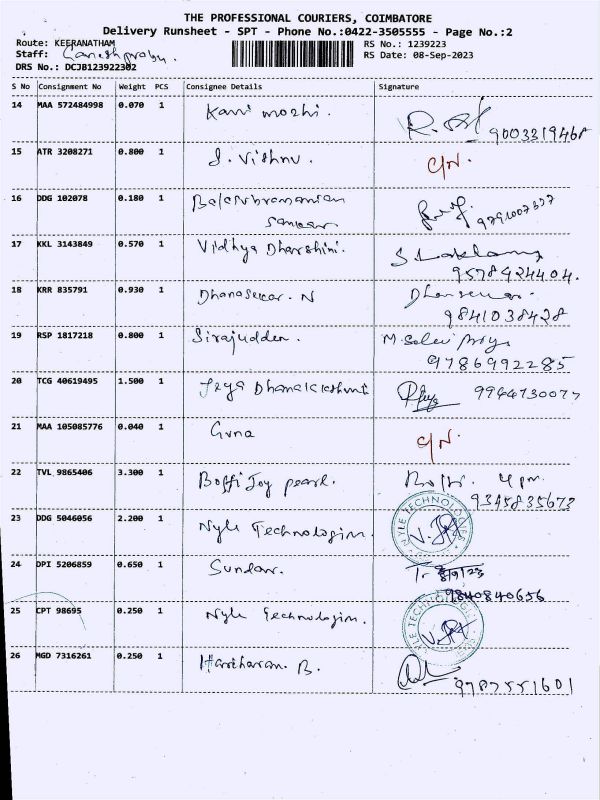 THE PROFESSIONAL COURIERS, COIMBATORE
Delivery Runsheet - SPT - Phone No.:0422-3505555 - Page No.:2
Route: KEERANATHAM RS No.: 1239223
Staff: Ganeshprabu. RS Date: 08-Sep-2023
DRS No.: DCJB123922302
S No Consignment No Weight PCS Consignee Details Signature
14 MAA 572484998 0.070 1 Kani mozhi.
9003319468
15 ATR 3208271 0.800 1 J. Vishnu. C/N.
16 DDG 102078 0.180 1 Balasubramanian
Sankar 9791007377
17 KKL 3143849 0.570 1 Vidhya Dharshini.
9578424404.
18 KRR 835791 0.930 1 Dhanasekar. N
9841038428
19 RSP 1817218 0.800 1 Sirajudden.
9786992285
20 TCG 40619495 1.500 1 Jeya Dhanalakshmi 9944730077
21 MAA 105085776 0.040 1 Guna C/N.
22 TVL 9865406 3.300 1 Boffi Joy pearl.
9345835673
23 DDG 5046056 2.200 1 Nyle Technologies. NYLE TECHNOLOGIES
24 DPI 5206859 0.650 1 Sundar. 8/9/23
9840840656
25 CPT 98695 0.250 1 Nyle Technologies. NYLE TECHNOLOGIES
26 MGD 7316261 0.250 1 Hariharan. B.
9787551601